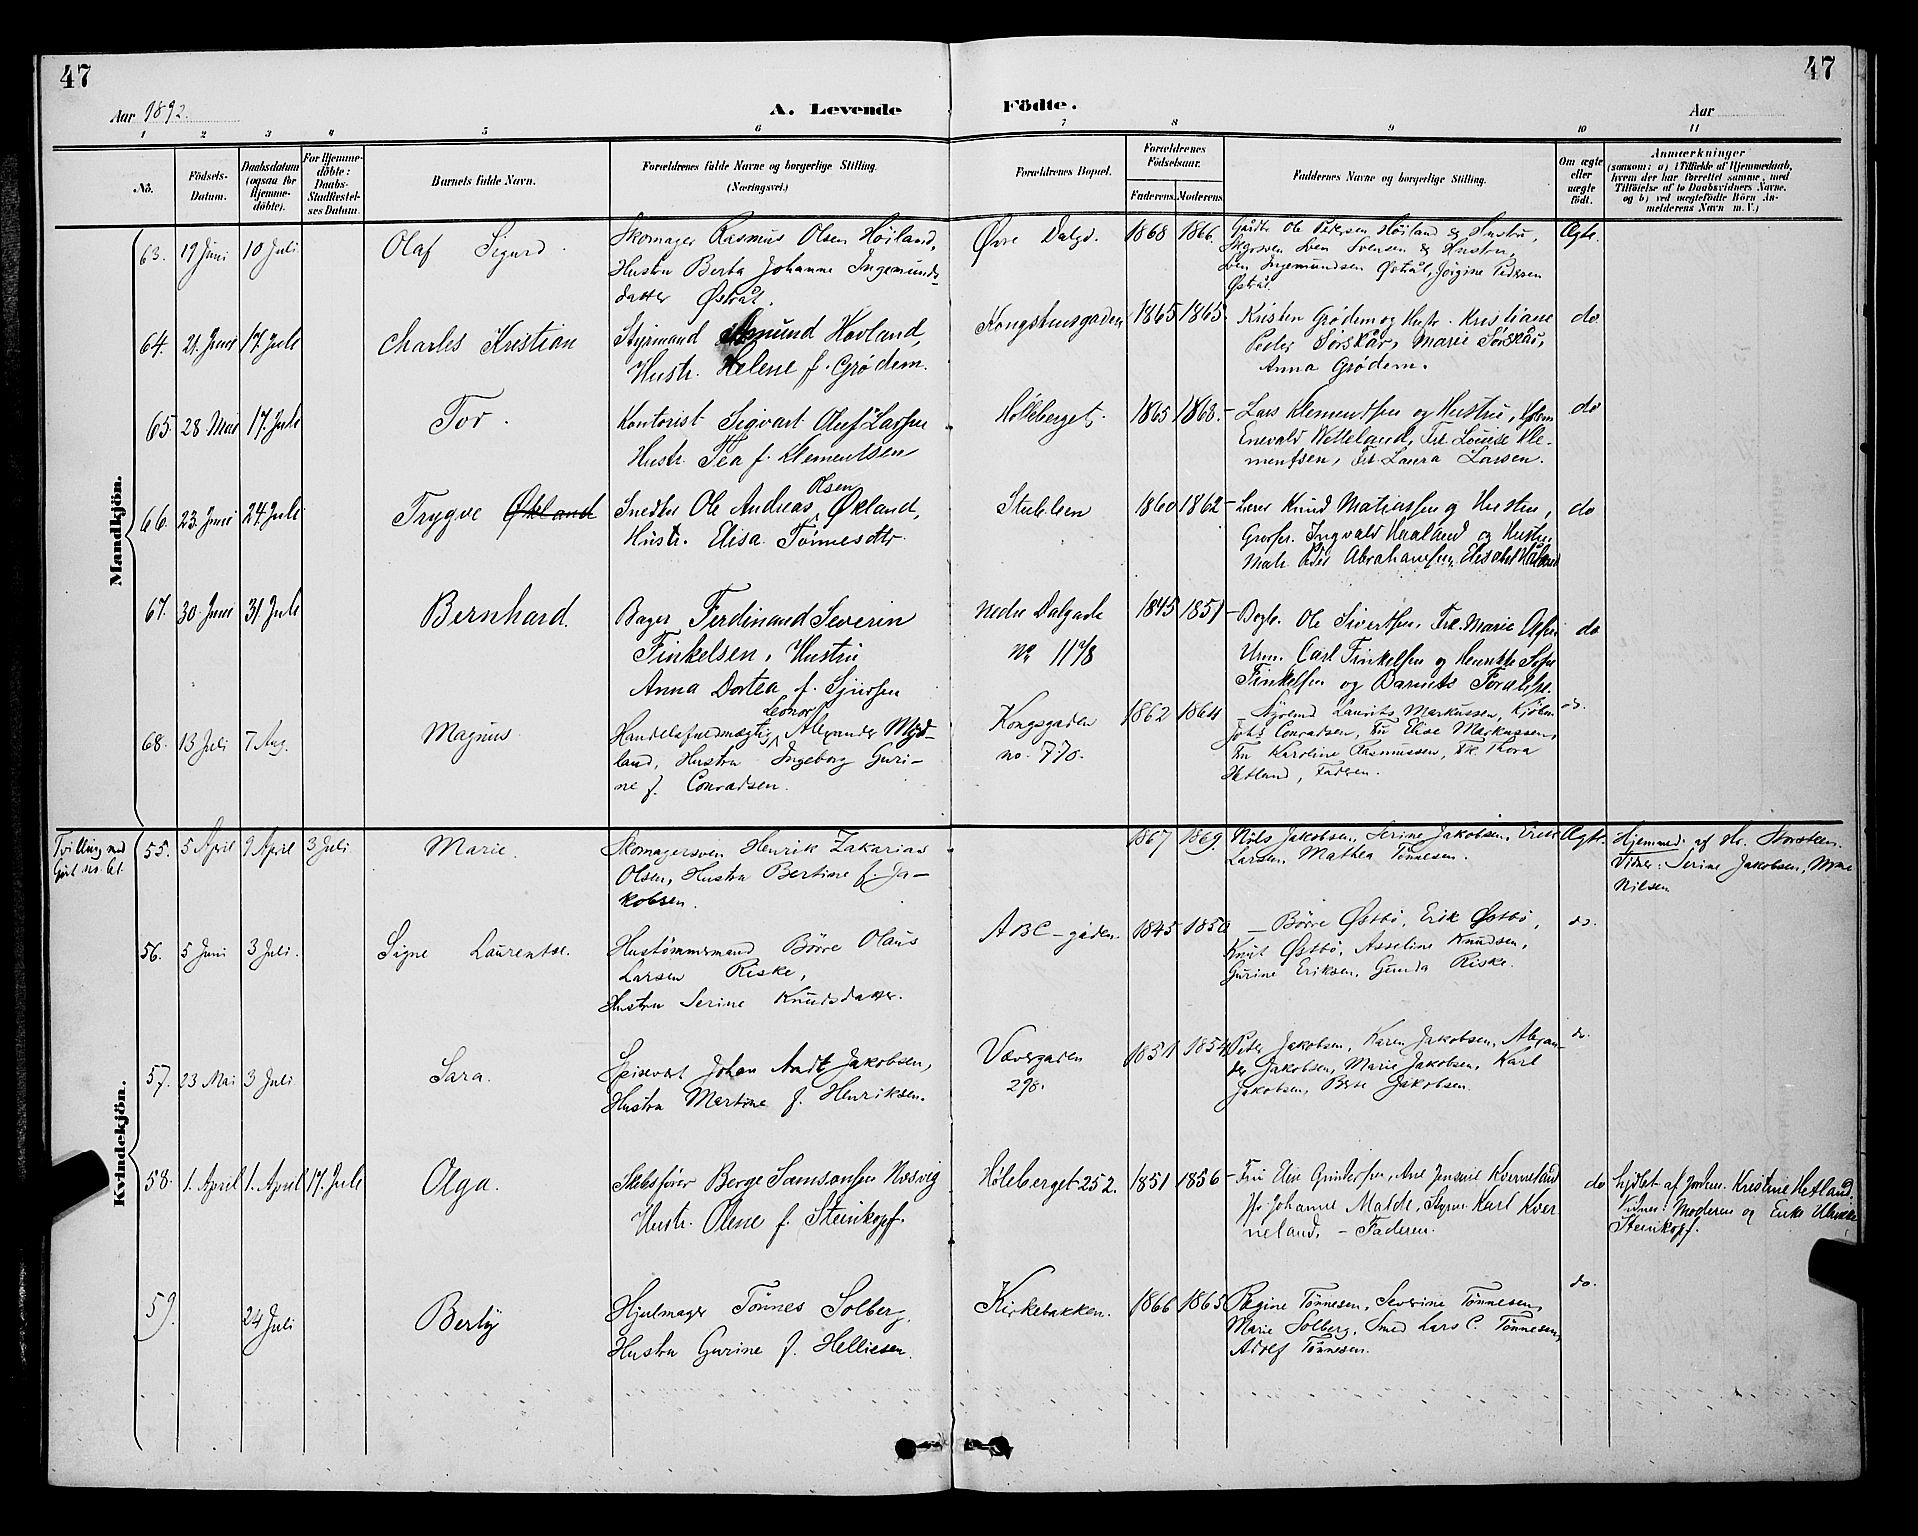 47
47
Aar 1892.
A. Levende
Födte.
Aar
1 2 3 4 5 6 7 8 9 10 11
No.
Födsels-
Datum.
Daabsdatum
(ogsaa for
Hjemme-
döbte).
For Hjemme-
döbte:
Daabs-
Stadfæstel-
ses Datum.
Barnets fulde Navn.
Forældrenes fulde Navne og borgerlige Stilling.
(Næringsvei.)
Forældrenes Bopæl.
Forældrenes
Födselsaar.
Faderens. Moderens.
Faddernes Navne og borgerlige Stilling.
Om ægte
eller
uægte
födt.
Anmærkninger
(saasom: a) i Tilfælde af Hjemmedaab,
hvem der har forrettet samme, med
Tilföielse af to Daabsvidners Navne,
og b) ved uægtefödte Börn An-
melderens Navn m. V.)
Mandkjön.
63. 19 Juni 10 Juli
Olaf Sigurd
Skomager Rasmus Olsen Höiland,
Hustru Berta Johanne Ingemunds-
datter Østråt.
Øvre Dalgd.
1868 1866.
Gårdbr Ole Pedersen Höiland & Hustru,
Sven Svensen & Hustru,
Sven Ingemundsen Østråt, Jörgine Pedersen
Østråt.
Ægte.
64. 21. Juni 17. Juli
Charles Kristian
Styrmand Åsmund Hovland,
Hustr. Helene f. Grödem.
Kongshusgaden
1865 1865.
Kristen Grödem og Hustr. Kristiane
Peder Sörskår, Marie Sörskår,
Anna Grödem.
do
65. 28 Mai 17. Juli
Tor.
Kontorist Sigvart Oluf Larsen
Hustr. Tea f. Klementsen
Höleberget.
1865 1868.
Lars Klementsen og Hustru,
Enevald Wetteland, Frk. Louise Kle-
mentsen, Frk. Laura Larsen.
do
66. 23. Juni 24 Juli
Trygve Økland
Olsen
Snedker Ole Andreas Økland,
Hustr. Elisa Tönnesdtr.
Stubleen
1860 1862
Lærer Knud Matiassen og Hustru,
Grosser. Ingvald Haaland og Hustru,
Male Peder Abrahamsen, Elisabet Haaland
do
67. 30. Juni 31 Juli
Bernhard.
Bager Ferdinand Severin
Finkelsen, Hustru
Anna Dortea f. Sjursen
Nedre Dalgade
no 117/8
1845 1851
Bogh. Ole Sivertsen, Frk. Marie Olsen
Urm. Carl Finkelsen og Henrikke Sofie
Finkelsen og Barnets Forældre.
do
68. 13 Juli 7 Aug.
Magnus.
Leonor
Handelsfuldmægtig Alexander Myd-
land, Hustru Ingeborg Guri-
ne f. Conradsen.
Kongsgaden
no. 770.
1862 1864
Styrmd Laurits Markussen, Kjöbm
Johs Conradsen, Fru Elise Markussen,
Fru Karoline Rasmussen, Frk. Thora
Hetland, Faderen.
do.
Kvindekjön.
Tvilling med
Gut no. 61.
55. 5 April 9 April 3 Juli
Marie.
Skomagersven Henrik Zakarias
Olsen, Hustru Bertine f. Ja-
kobsen.
1867 1869.
Nils Jakobsen, Serine Jakobsen, Erik
Larsen, Mathea Tönnesen.
Ægte.
Hjemmed. af Hr. Storsteen.
Vidner: Serine Jakobsen, Nine
Nilsen
56. 5 Juni 3 Juli.
Signe Laurentze.
Hustömmermand Börre Olaus
Larsen Riske,
Hustru Serine Knudsdatter.
ABC-gaden.
1845 1850
Börre Östbö, Erik Östbö,
Knut Östbö, Asseline Knudsen,
Gurine Eriksen, Gunda Riske.
do.
57. 23 Mai 3 Juli
Sara.
Spisevært Johan Arndt Jakobsen,
Hustru Martine f. Henriksen.
Vævergaden
298.
1851 1854
Peter Jakobsen, Karen Jakobsen, Alexan-
der Jakobsen, Marie Jakobsen, Karl
Jakobsen, Berte Jakobsen.
do.
58. 1. April 1. April 17. Juli
Olga.
Skibsförer Berge Samsonsen Næsvig
Hustr. Olene f. Steinkopf.
Höleberget 252.
1851 1856
Fru Elise Gundersen, Ane Jensine Kverneland
Johanne Malde, Styrm. Karl Kver
neland, - Faderen.
do
hjdbt. af Jordm. Kristine Hetland.
Vidner: Moderen og Enke Ulrikke
Steinkopf.
59. 24 Juli
Berly
Hjulmager Tönnes Solberg,
Hustru Gurine f. Helliesen.
Kirkebakken.
1866 1865
Regine Tönnesen, Severine Tönnesen,
Marie Solberg, Smed Lars C. Tönnesen,
Adolf Tönnesen.
do.